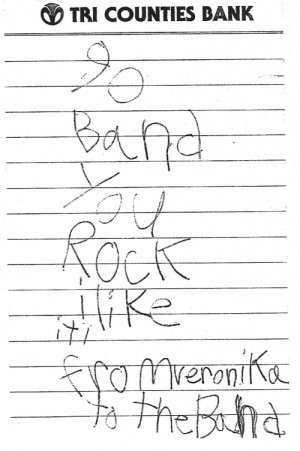 TRI COUNTIES BANK
go
Band
You
Rock
i like
iti
from Mveronika
to the Band